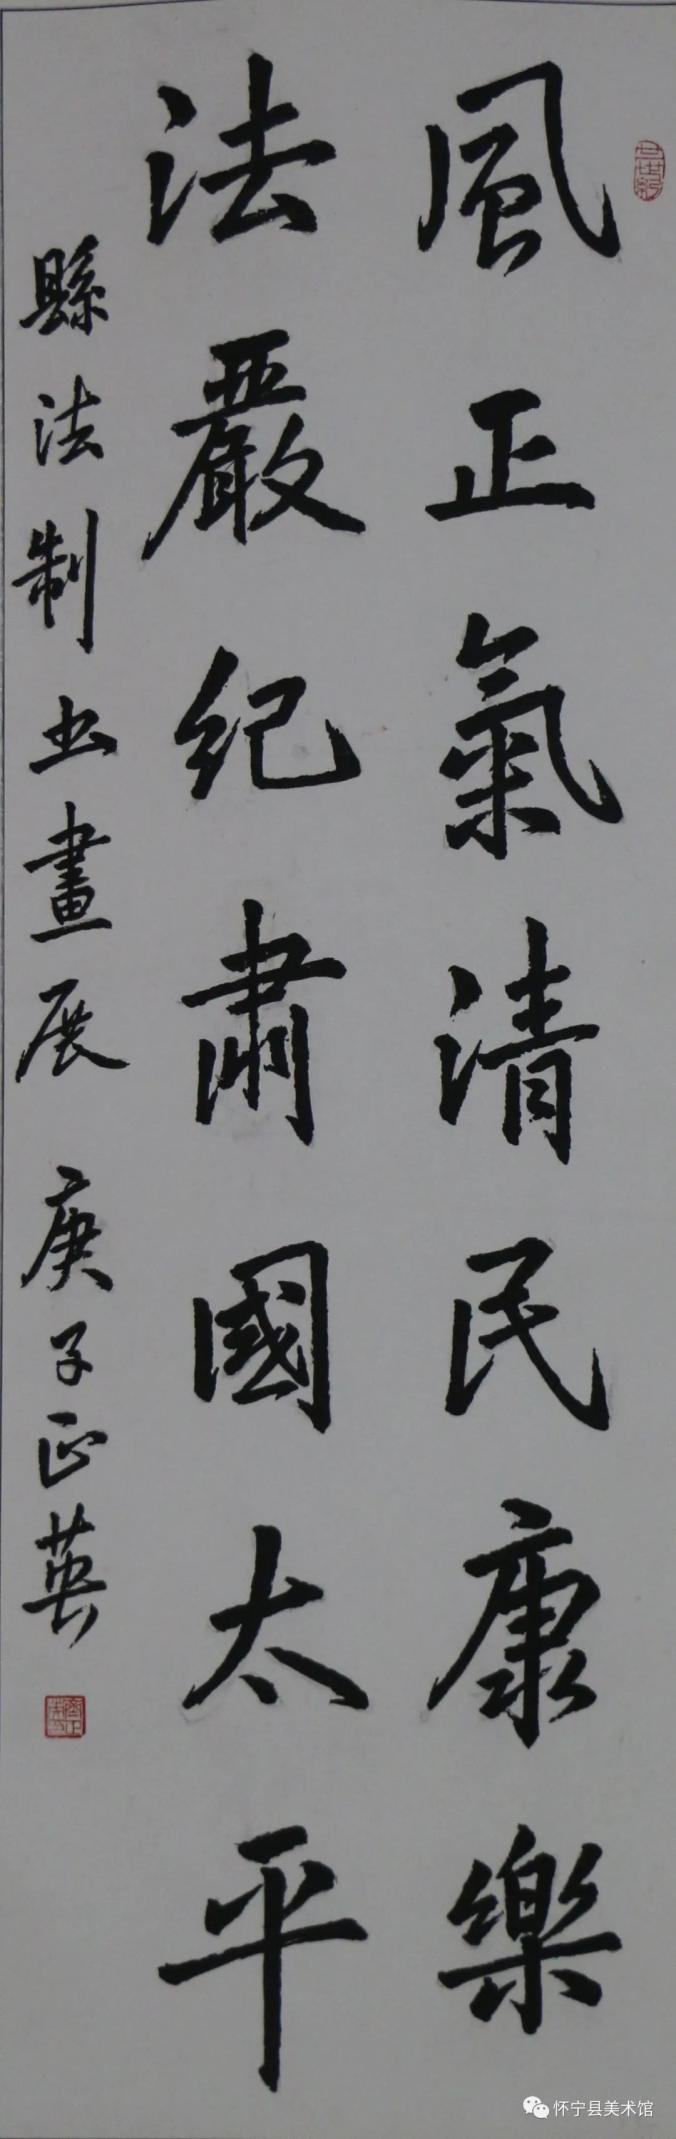 風正氣清民康樂
法嚴紀肅國太平
縣法制书畫展 庚子正英
怀宁县美术馆